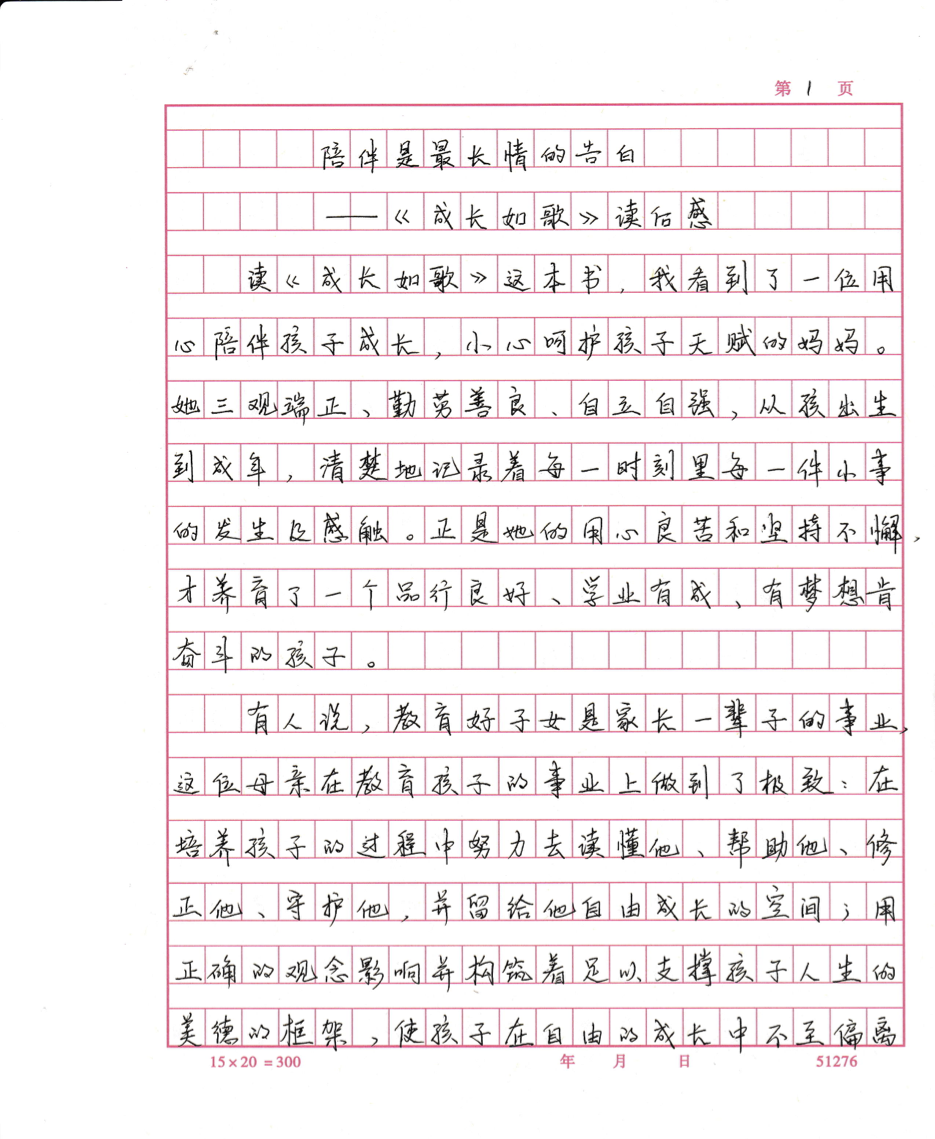 第 1 页
陪伴是最长情的告白
——《成长如歌》读后感
读《成长如歌》这本书，我看到了一位用
心陪伴孩子成长，小心呵护孩子天赋的妈妈。
她三观端正、勤劳善良、自立自强，从孩出生
到成年，清楚地记录着每一时刻里每一件小事
的发生及感触。正是她的用心良苦和坚持不懈，
才养育了一个品行良好、学业有成、有梦想肯
奋斗的孩子。
有人说，教育好子女是家长一辈子的事业，
这位母亲在教育孩子的事业上做到了极致：在
培养孩子的过程中努力去读懂他、帮助他、修
正他、守护他，并留给他自由成长的空间；用
正确的观念影响并构筑着足以支撑孩子人生的
美德的框架，使孩子在自由的成长中不至偏离
15×20=300 年 月 日 51276